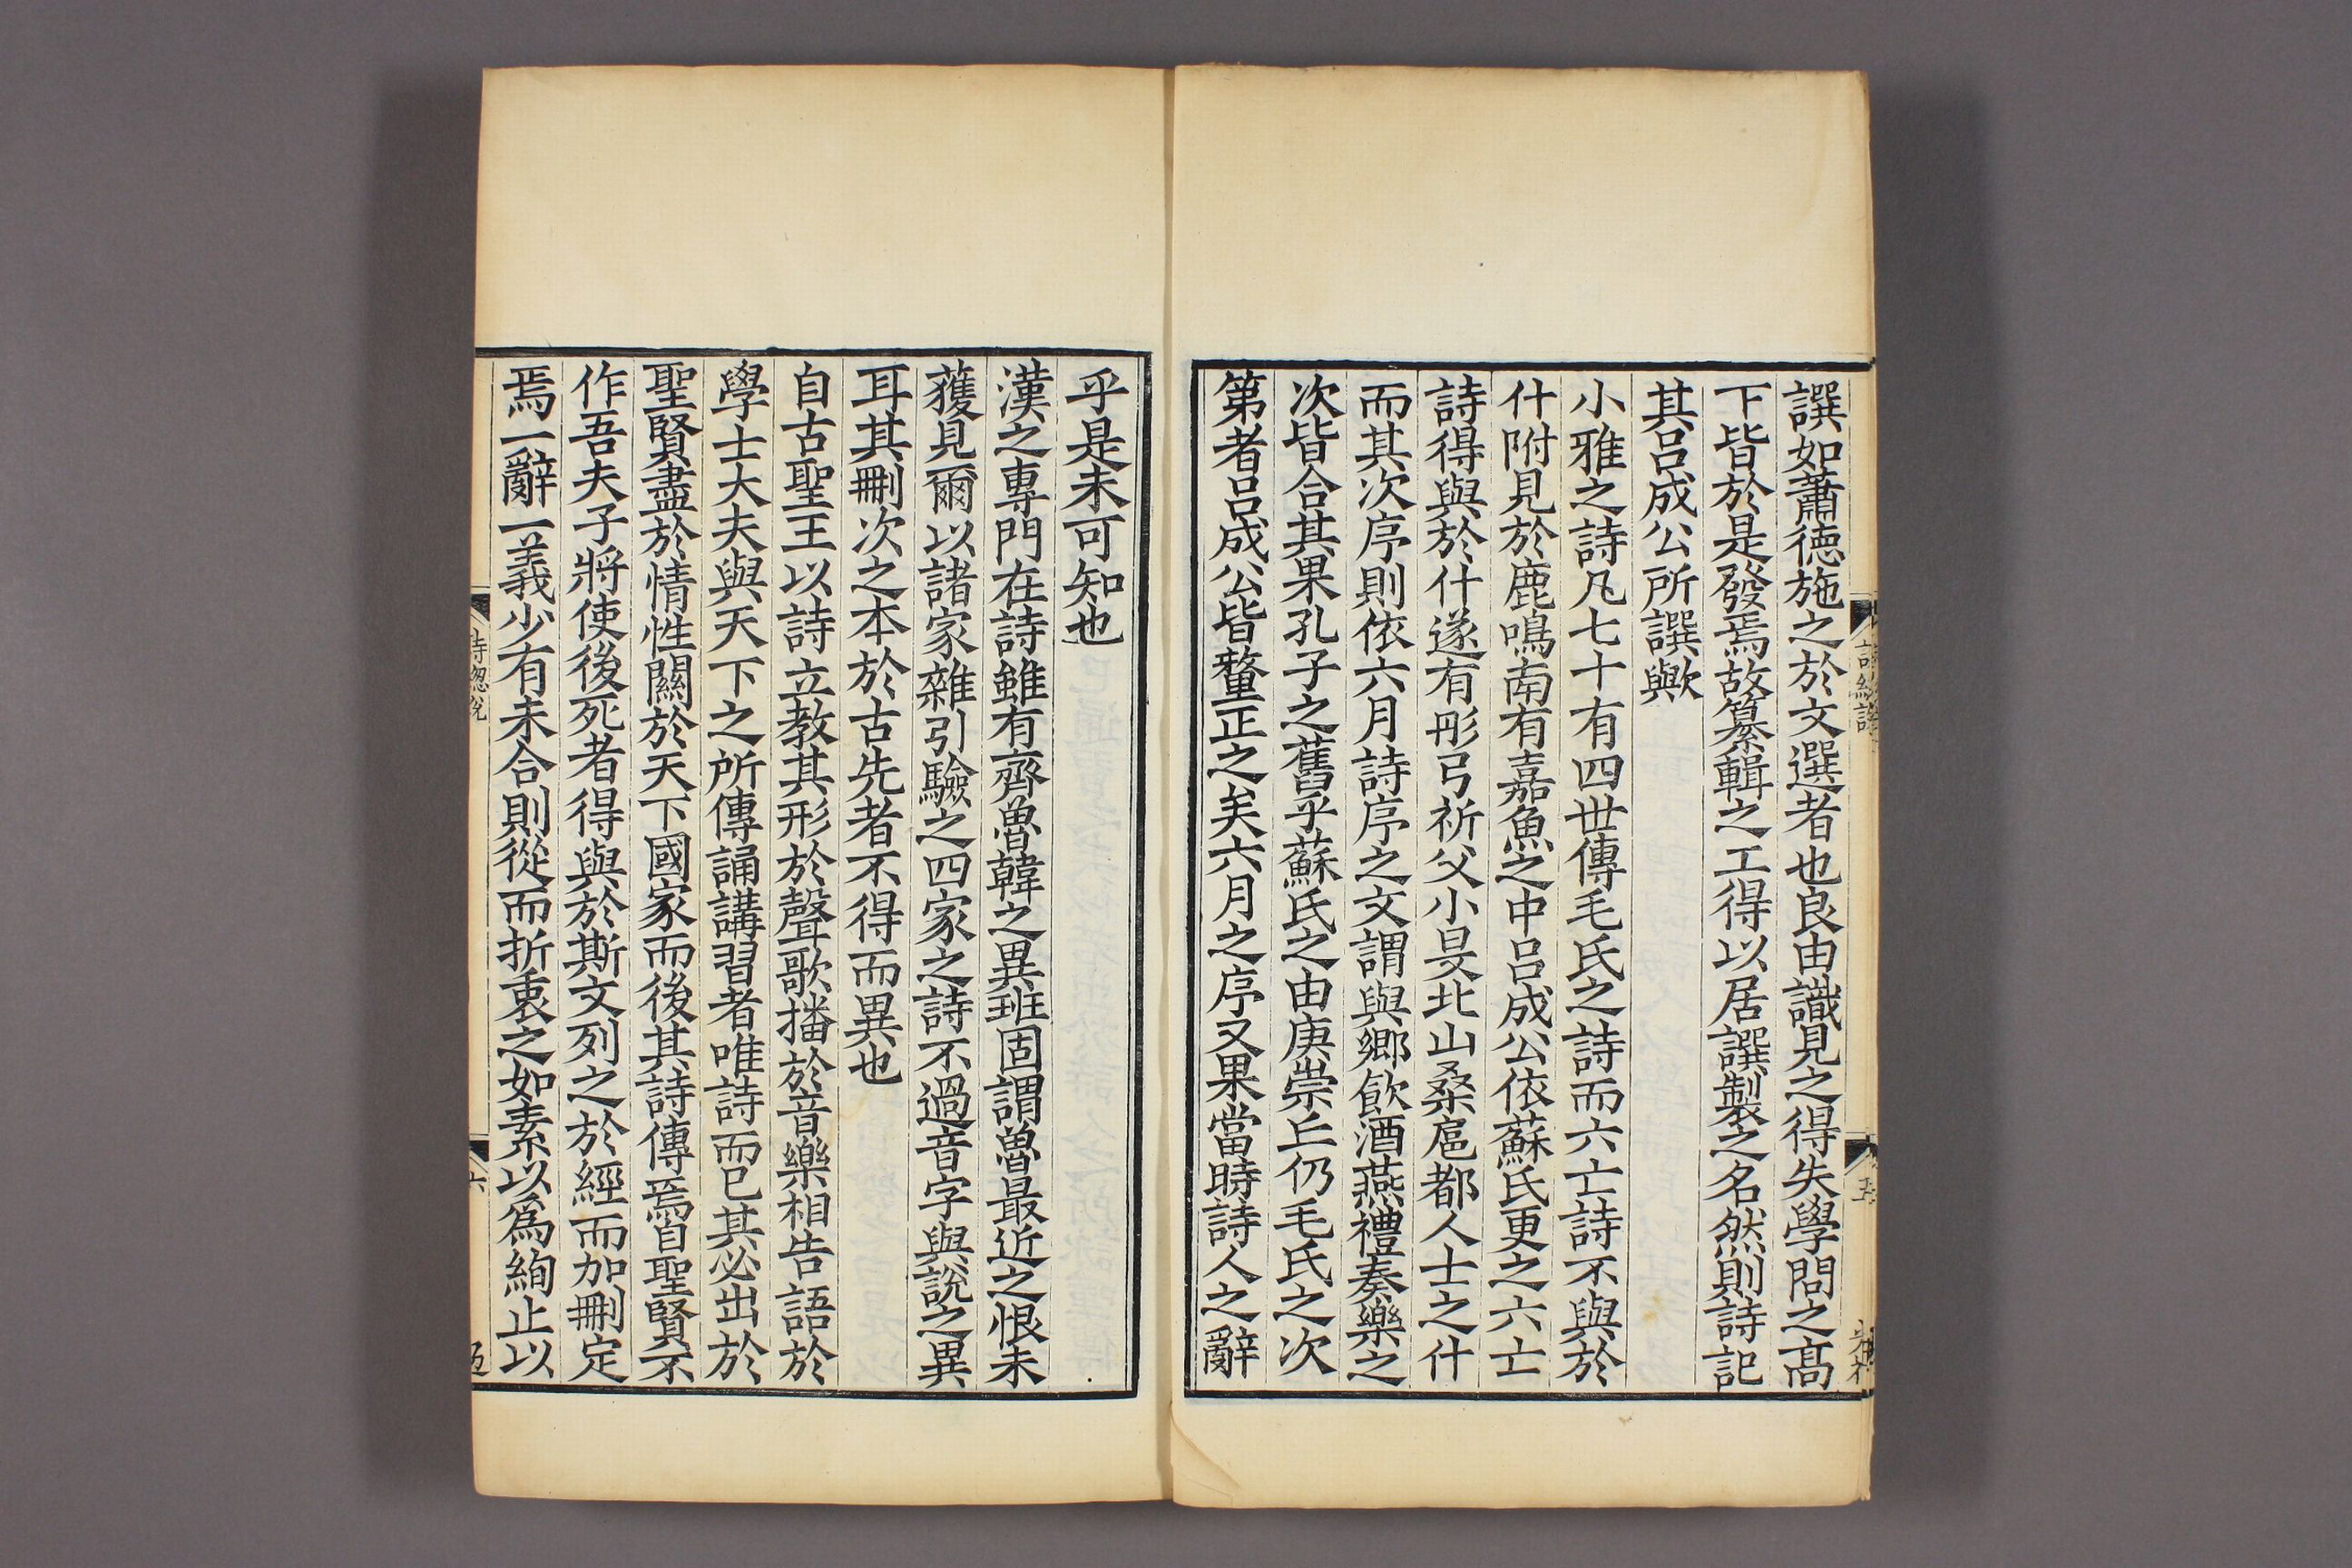 譔如蕭德施之於文選者也良由識見之得失學問之髙
下皆於是發焉故纂輯之工得以居譔製之名然則詩記
其吕成公所譔歟
小雅之詩凡七十有四世傳毛氏之詩而六亡詩不與於
什附見於鹿鳴南有嘉魚之中吕成公依蘇氏更之六亡
詩得與於什遂有彤弓祈父小旻北山桑扈都人士之什
而其次序則依六月詩序之文謂與鄉飲酒燕禮奏樂之
次皆合其果孔子之舊乎蘇氏之由庚崇丘仍毛氏之次
第者吕成公皆釐正之矣六月之序又果當時詩人之辭
乎是未可知也
漢之專門在詩雖有齊魯韓之異班固謂魯最近之恨未
獲見爾以諸家雜引驗之四家之詩不過音字與說之異
耳其刪次之本於古先者不得而異也
自古聖王以詩立教其形於聲歌播於音樂相告語於
學士大夫與天下之所傳誦講習者唯詩而已其必出於
聖賢盡於情性關於天下國家而後其詩傳焉自聖賢不
作吾夫子將使後死者得與於斯文列之於經而加刪定
焉一辭一義少有未合則從而折衷之如素以爲絢止以
詩緫說
六